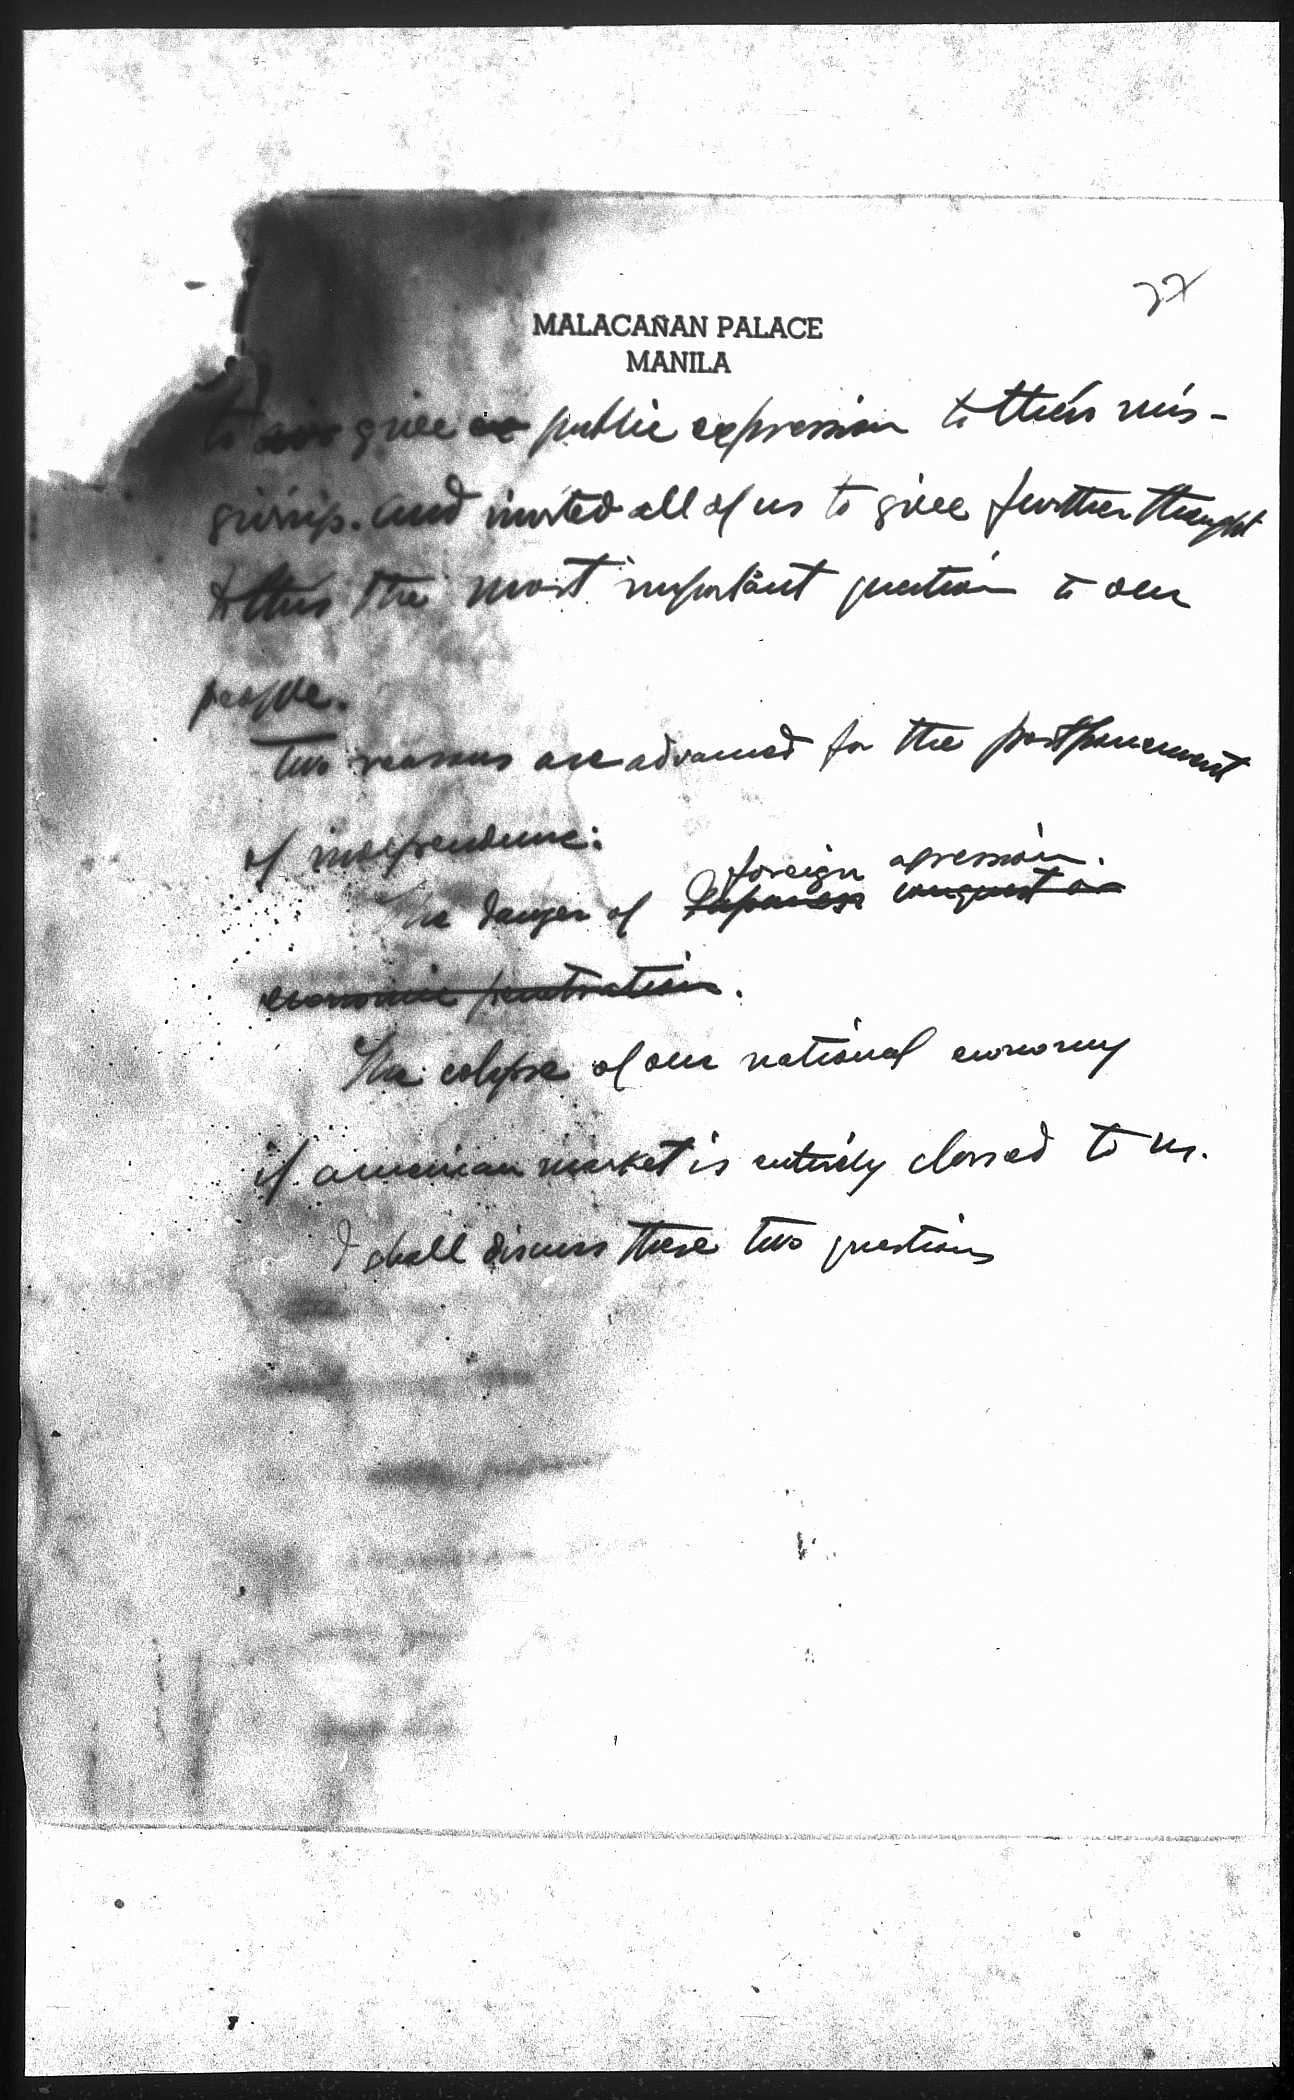 27
MALACAÑAN PALACE
MANILA
to give public expression to their mis-
givings. and invited all of us to give further thought
to this the most important question to our
people.
Two reasons are advanced for the postponement
of independence:
foreign agression.
The danger of Japanese conquest or
economic penetration.
The colapse of our national economy
if american market is entirely closed to us.
I shall discuss these two questions